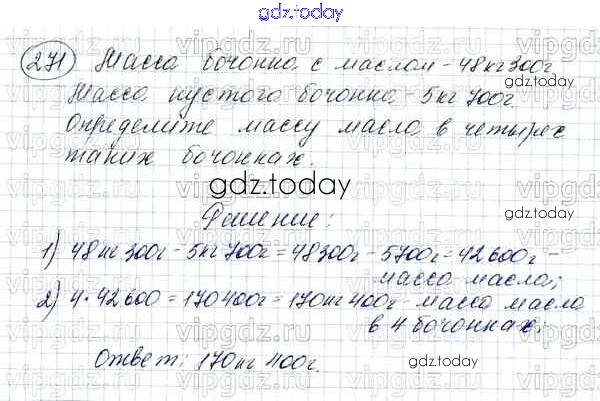 gdz.today
271 Масса бочонка с маслом - 48 кг 300 г.
gdz.today
Масса пустого бочонка - 5 кг 700 г.
Определите массу масла в четырех
таких бочонках.
gdz.today
Решение:
1) 48 кг 300 г - 5 кг 700 г = 48300 г - 5700 г = 42600 г -
масса масла;
2) 4 · 42600 = 170400 г = 170 кг 400 г - масса масла
в 4 бочонках.
Ответ: 170 кг 400 г.
gdz.today